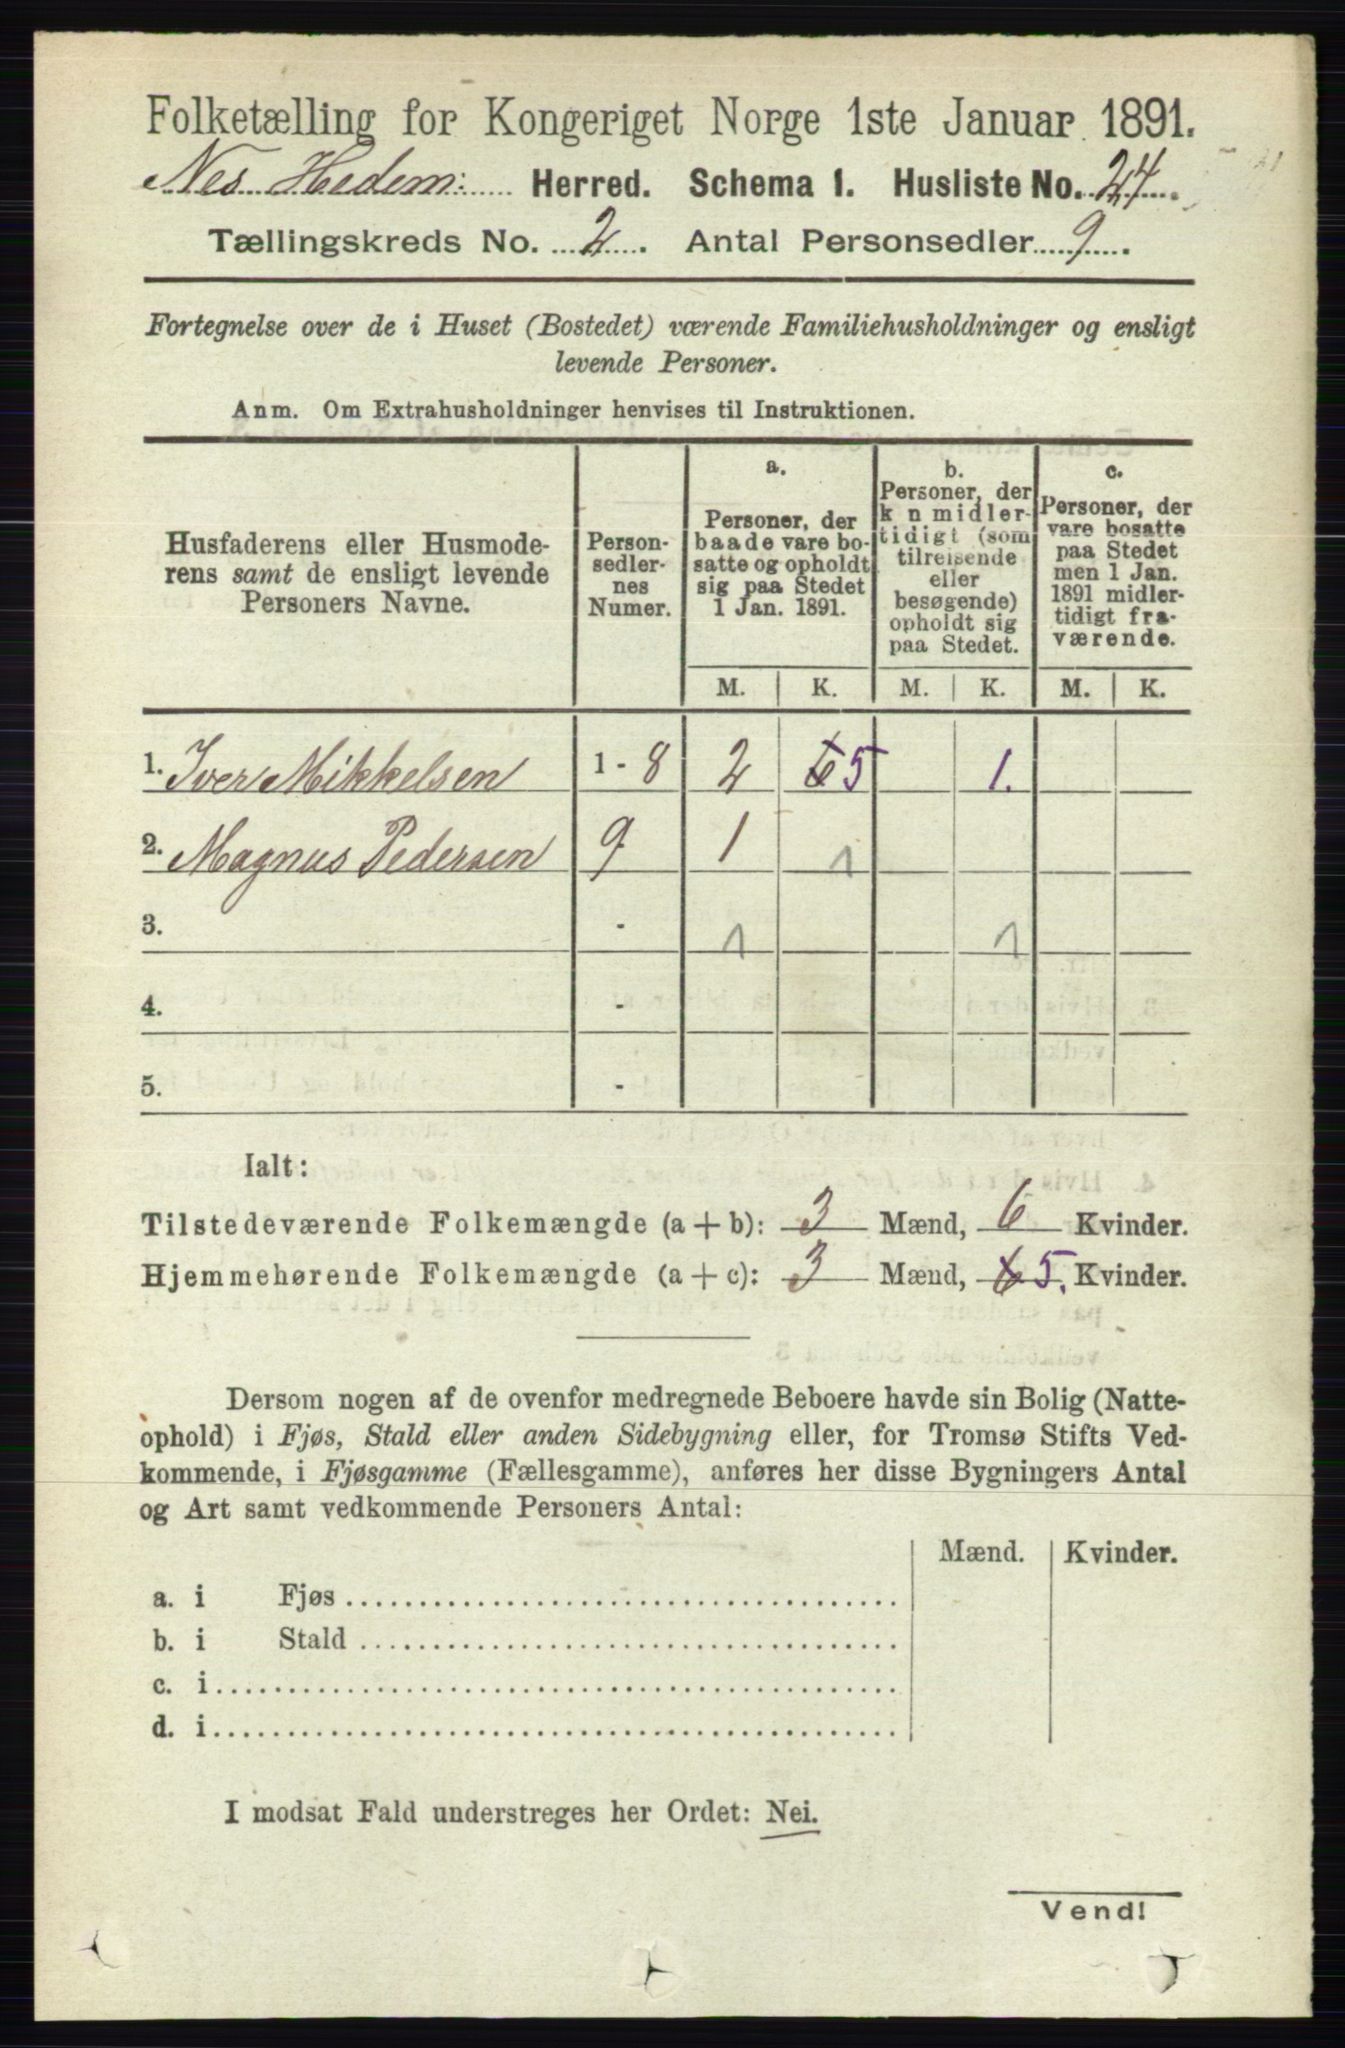 Folketælling for Kongeriget Norge 1ste Januar 1891.
Nes Hedem: Herred. Schema 1. Husliste No. 24.
Tællingskreds No. 2. Antal Personsedler 9.
Fortegnelse over de i Huset (Bostedet) værende Familiehusholdninger og ensligt
levende Personer.
Anm. Om Extrahusholdninger henvises til Instruktionen.
Husfaderens eller Husmode-
rens samt de ensligt levende
Personers Navne.
Person-
sedler-
nes
Numer.
a.
Personer, der
baade vare bo-
satte og opholdt
sig paa Stedet
1 Jan. 1891.
b.
Personer, der
k n midler-
tidigt (som
tilreisende
eller
besøgende)
opholdt sig
paa Stedet.
c.
Personer, der
vare bosatte
paa Stedet
men 1 Jan.
1891 midler-
tidigt fra-
værende.
M. K. M. K. M. K.
1. Iver Mikkelsen 1 - 8 2 6 5 1.
2. Magnus Pedersen 9 1 1
3. - 1 1
4. -
5. -
Ialt:
Tilstedeværende Folkemængde (a + b): 3 Mænd, 6 Kvinder.
Hjemmehørende Folkemængde (a + c): 3 Mænd, 6 5. Kvinder.
Dersom nogen af de ovenfor medregnede Beboere havde sin Bolig (Natte-
ophold) i Fjøs, Stald eller anden Sidebygning eller, for Tromsø Stifts Ved-
kommende, i Fjøsgamme (Fællesgamme), anføres her disse Bygningers Antal
og Art samt vedkommende Personers Antal:
Mænd. Kvinder.
a. i Fjøs
b. i Stald
c. i
d. i
I modsat Fald understreges her Ordet: Nei.
Vend!